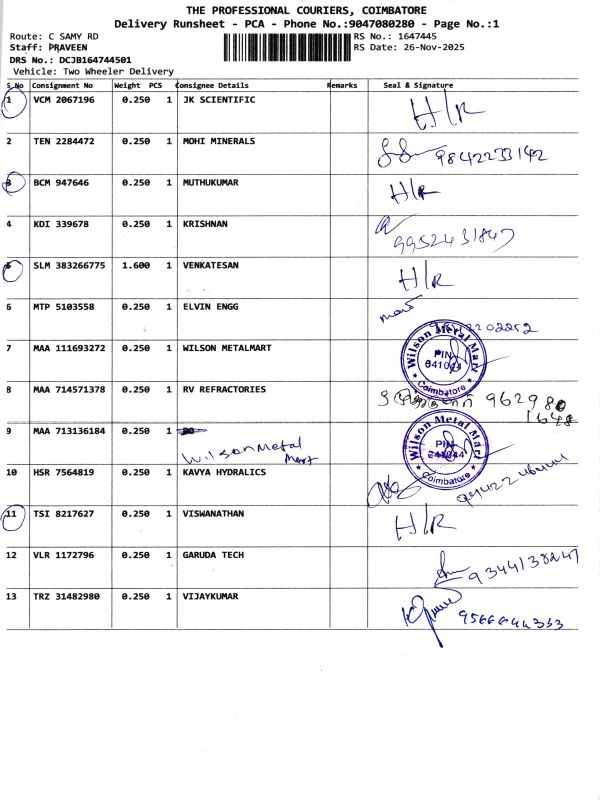 THE PROFESSIONAL COURIERS, COIMBATORE
Delivery Runsheet - PCA - Phone No.:9047080280 - Page No.:1
Route: C SAMY RD
RS No.: 1647445
Staff: PRAVEEN
RS Date: 26-Nov-2025
DRS No.: DCJB164744501
Vehicle: Two Wheeler Delivery
S.No Consignment No Weight PCS Consignee Details Remarks Seal & Signature
1 VCM 2067196 0.250 1 JK SCIENTIFIC H/R
2 TEN 2284472 0.250 1 MOHI MINERALS 9842233142
3 BCM 947646 0.250 1 MUTHUKUMAR H/R
4 KDI 339678 0.250 1 KRISHNAN 9952431847
5 SLM 383266775 1.600 1 VENKATESAN H/R
6 MTP 5103558 0.250 1 ELVIN ENGG
7 MAA 111693272 0.250 1 WILSON METALMART
Wilson Metal Mart
PIN
641044
Coimbatore
8 MAA 714571378 0.250 1 RV REFRACTORIES 962980
1648
9 MAA 713136184 0.250 1
Wilson Metal
Mart
Wilson Metal Mart
PIN
641044
Coimbatore
10 HSR 7564819 0.250 1 KAVYA HYDRALICS
11 TSI 8217627 0.250 1 VISWANATHAN H/R
12 VLR 1172796 0.250 1 GARUDA TECH 9344138247
13 TRZ 31482980 0.250 1 VIJAYKUMAR 9566644333